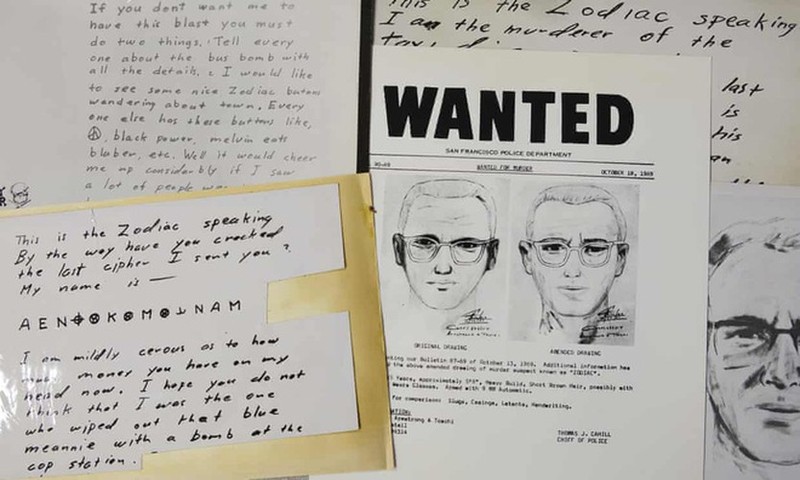 If you dont want me to
have this blast you must
do two things. Tell every
one about the bus bomb with
all the details. I would like
to see some nice Zodiac butons
wandering about town. Every
one else has these buttons like,
☮, black power, melvin eats
bluber, etc. Well it would cheer
me up considerbly if I saw
a lot of people
This is the Zodiac speaking
I am the murderer of the
last
is
his
WANTED
SAN FRANCISCO POLICE DEPARTMENT
WANTED FOR MURDER OCTOBER 18, 1969
ORIGINAL DRAWING AMENDED DRAWING
our Bulletin 87-69 of October 13, 1969. Additional information has
the above amended drawing of murder suspect known as "ZODIAC".
Years, Approximately 5'8", Heavy Build, Short Brown Hair, possibly with
Glasses. Armed with 9 MM Automatic.
for comparison: Slugs, Casings, Latents, Handwriting.
Armstrong & Toschi
THOMAS J. CAHILL
CHIEF OF POLICE
This is the Zodiac speaking
By the way have you cracked
the last cipher I sent you?
My name is —
A E N ⊕ ⊗ K ⊗ M ⊗ ⅃ N A M
I am mildly cerous as to how
much money you have on my
head now. I hope you do not
think that I was the one
who wiped out that blue
meannie with a bomb at the
cop station.